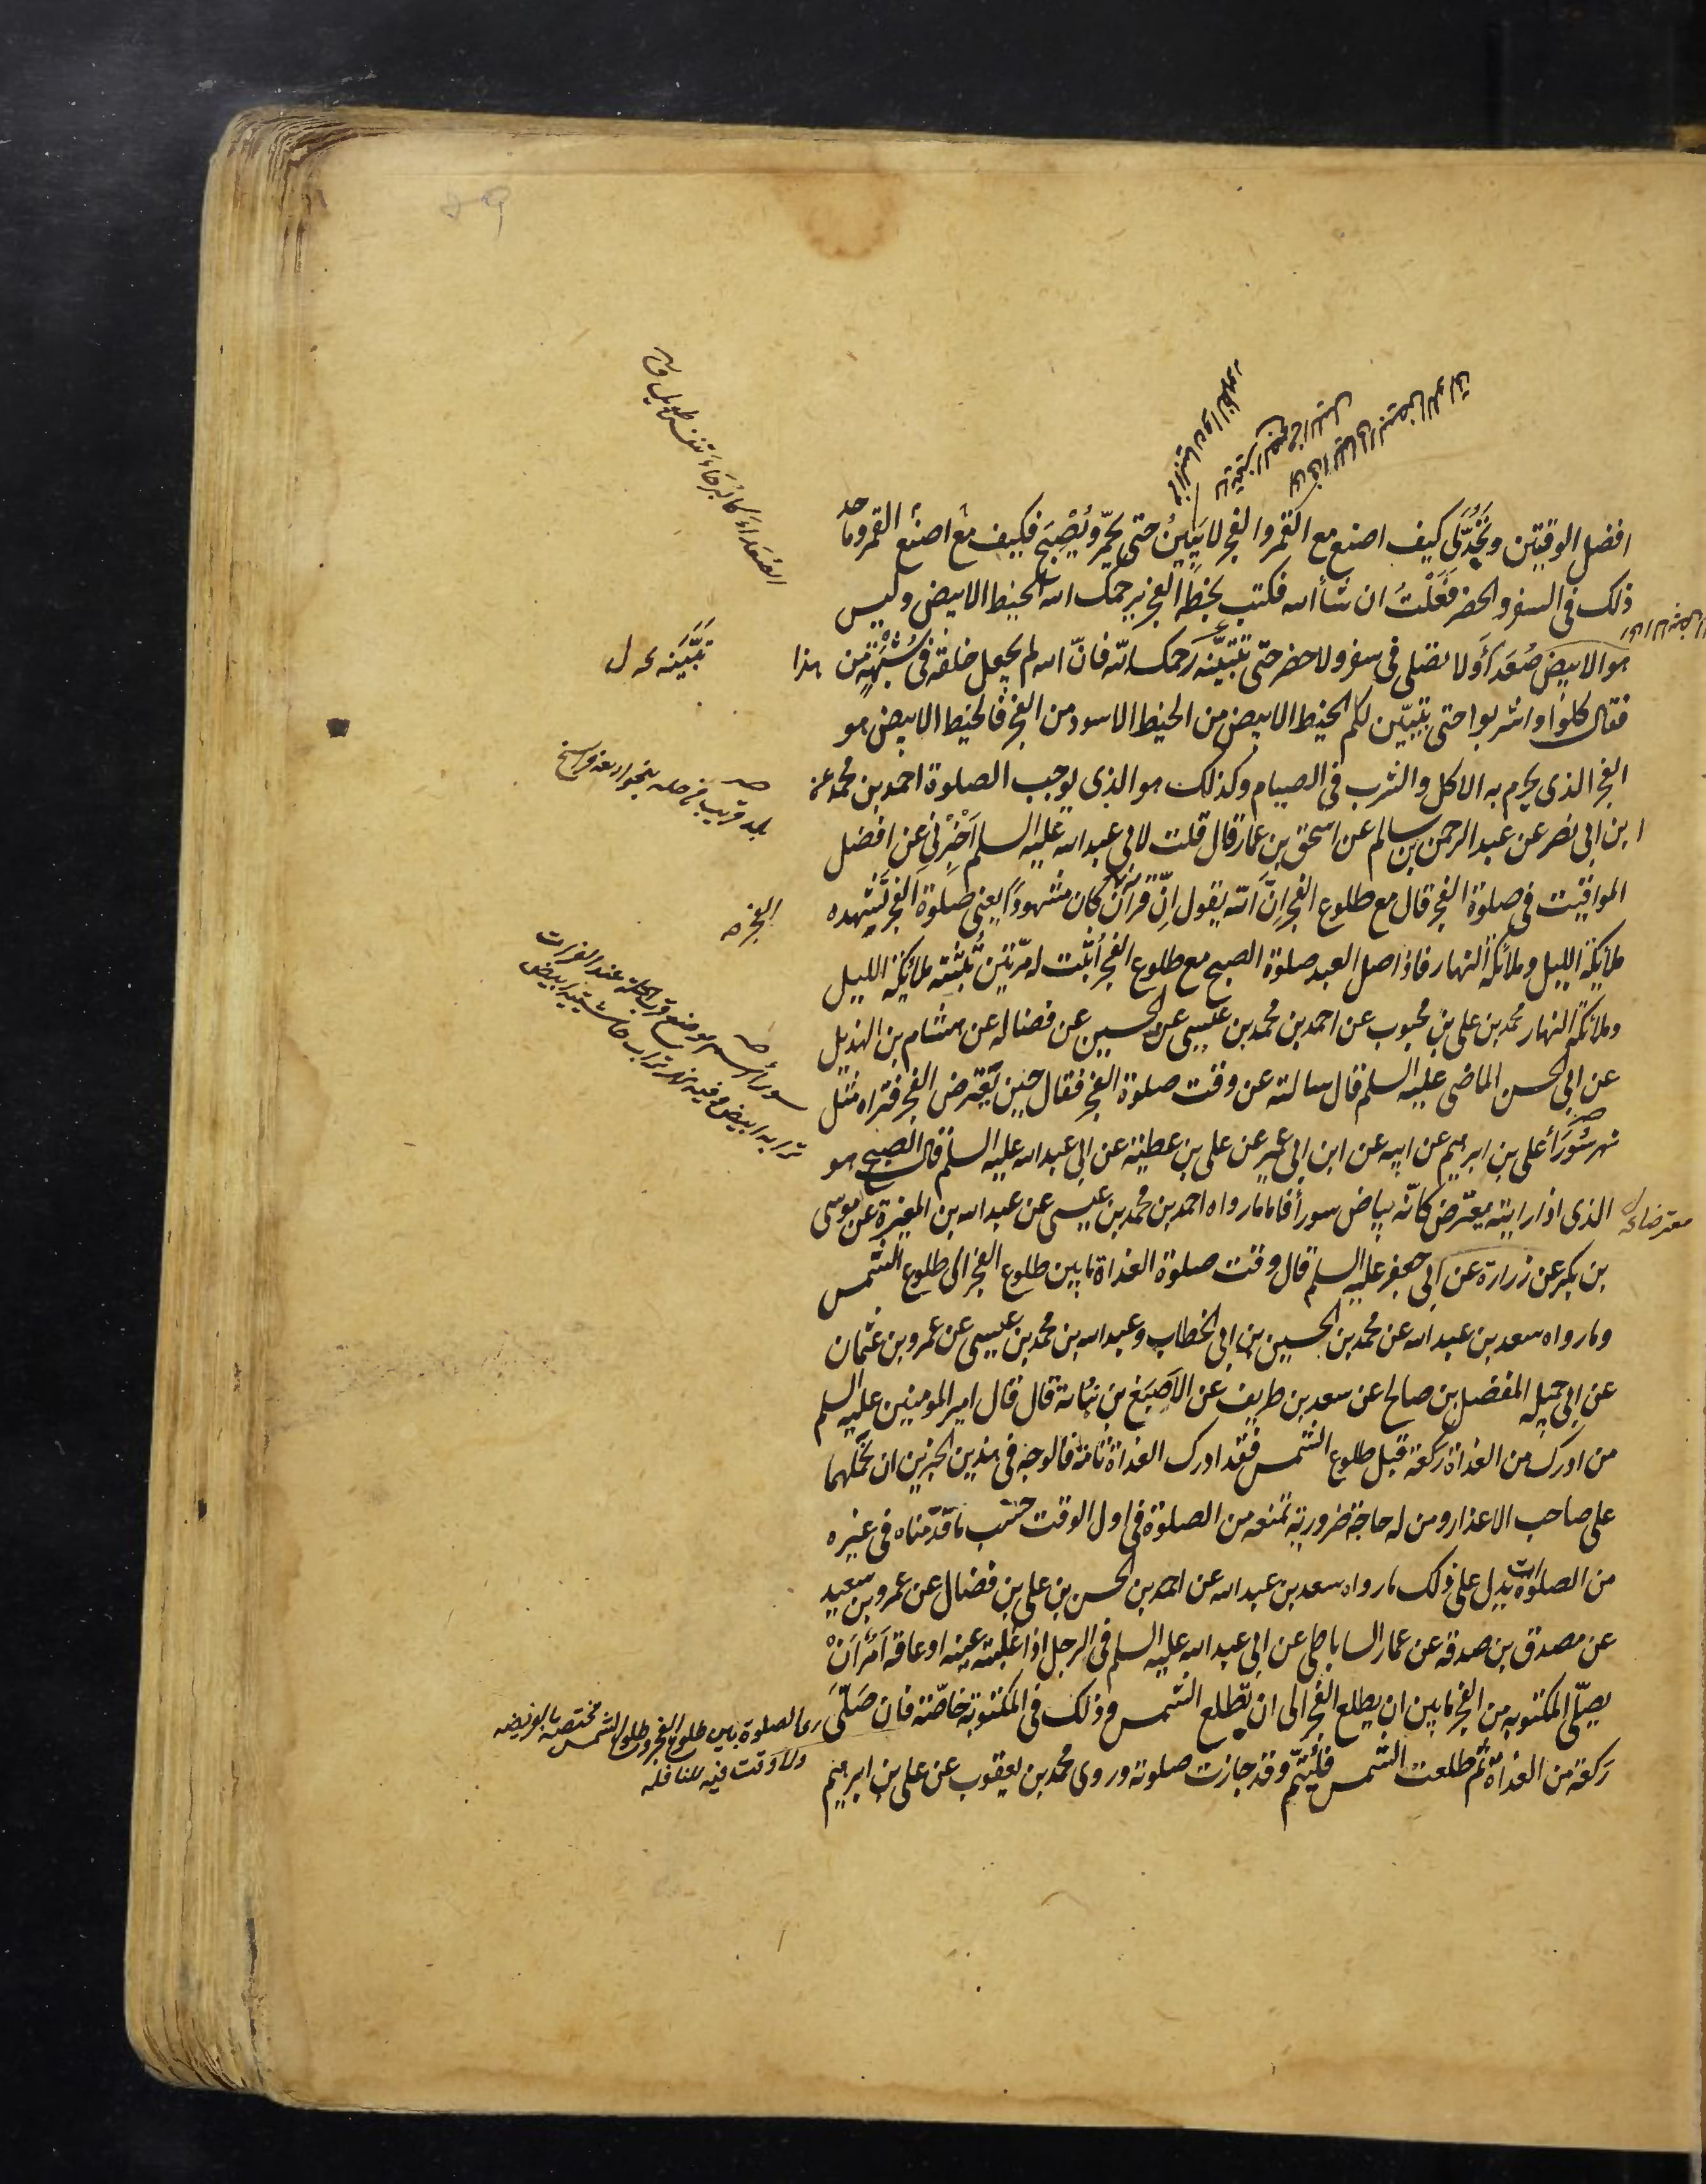 افضل الوقتين وتَحُدَّ لى كيف اصنع مع القمر والفجر لا يَبِينُ حتى يحمّر ويُصْبِح فكيف اصنع مع القمر وما حد
ذلك فى السفر والحضر فَعَلْتَ ان شاء الله فكتب بخطّه الفجر يرحمك الله الخيط الابيض وليس
هو الابيض صُعَداً ولا تصلى فى سفر ولا حضر حتى تتبيّنه رحمك الله فانّ الله لم يجعل خلقه فى شُبْهَةٍ من هذا
فقال كلوا واشربوا حتى يتبيّن لكم الخيط الابيض من الخيط الاسود من الفجر فالخيط الابيض هو
الفجر الذى يحرم به الاكل والشرب فى الصيام وكذلك هو الذى يوجب الصلوة احمد بن محمد عن
ابن ابى نصر عن عبد الرحمن بن سالم عن اسحق بن عمار قال قلت لابى عبد الله عليه السلم اَخْبِرْنى عن افضل
المواقيت فى صلوة الفجر قال مع طلوع الفجر اِنَّ الله يقول اِنّ قرآن كان مشهوداً يعنى صلوة الفجر تشهده
ملائكة الليل وملائكة النهار فاذا صلى العبد صلوة الصبح مع طلوع الفجر اُثبِت له مرّتين تثبته ملائكة الليل
وملائكة النهار محمد بن على بن محبوب عن احمد بن محمد بن عيسى عن الحسين عن فضاله عن هشام بن الهذيل
عن ابى الحسن الماضى عليه السلم قال سالته عن وقت صلوة الفجر فقال حين يعترض الفجر فتراه مثل
نهر سُورَأ على بن ابرهيم عن ابيه عن ابن ابى عمير عن على بن عطية عن ابى عبد الله عليه السلم قال الصبح هو
الذى اذا رايته معترض كانّه بياض سورأ فاما ما رواه احمد بن محمد بن عيسى عن عبد الله بن المغيرة عن موسى
بن بكر عن زرارة عن ابى جعفر عليه السلم قال وقت صلوة الغداة ما بين طلوع الفجر الى طلوع الشمس
وما رواه سعد بن عبد الله عن محمد بن الحسين بن ابى الخطاب وعبد الله بن محمد بن عيسى عن عمرو بن عثمان
عن ابى جميله المفضل بن صالح عن سعد بن طريف عن الاَصْبَغ بن نُباتة قال قال امير المومنين عليه السلم
من ادرك من الغداة ركعة قبل طلوع الشمس فقد ادرك الغداة تامّة فالوجه فى هذين الخبرين ان نحملهما
على صاحب الاعذار ومن له حاجة ضرورية تمنعه من الصلوة فى اول الوقت حسَب ما قدّمناه فى غيره
من الصلوات يدل على ذلك ما رواه سعد بن عبد الله عن احمد بن الحسن بن على بن فضال عن عمرو بن سعيد
عن مصدق بن صدقه عن عمار الساباطى عن ابى عبد الله عليه السلم فى الرجل اذا غلبته عينه او عاقه اَمْرٌ اَنْ
يصلّى المكتوبه من الفجر ما بين ان يطلع الفجر الى ان تطلع الشمس وذلك فى المكتوبة خاصّة فان صَلّى
ركعة من الغداة ثم طلعت الشمس فليُتمّ وقد جازت صلوته وروى محمد بن يعقوب عن على بن ابرهيم
تَبَيَّنَه ل
الفجر
معترضا
سورأ موضع عند الفرات
ما بين طلوع الفجر وطلوع الشمس مختصة بالفريضه
ولا وقت فيه للنافله